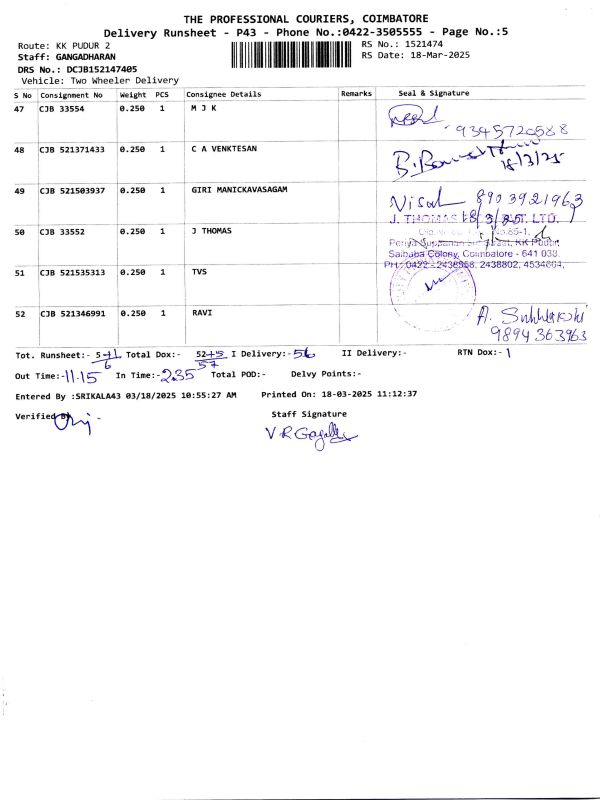 THE PROFESSIONAL COURIERS, COIMBATORE
Delivery Runsheet - P43 - Phone No.:0422-3505555 - Page No.:5
Route: KK PUDUR 2 RS No.: 1521474
Staff: GANGADHARAN RS Date: 18-Mar-2025
DRS No.: DCJB152147405
Vehicle: Two Wheeler Delivery
S No Consignment No Weight PCS Consignee Details Remarks Seal & Signature
47 CJB 33554 0.250 1 M J K
9345720588
48 CJB 521371433 0.250 1 C A VENKTESAN
18/3/25
49 CJB 521503937 0.250 1 GIRI MANICKAVASAGAM
8903921963
J. THOMAS LTD.
50 CJB 33552 0.250 1 J THOMAS
No.85-1,
KK Pudur,
Saibaba Colony, Coimbatore - 641 038.
PH: 0422 - 2438802,
51 CJB 521535313 0.250 1 TVS
52 CJB 521346991 0.250 1 RAVI
9894363963
Tot. Runsheet:- 5+1 Total Dox:- 52+5 I Delivery:- 56 II Delivery:- RTN Dox:- 1
6 57
Out Time:- 11.15 In Time:- 2.35 Total POD:- Delvy Points:-
Entered By :SRIKALA43 03/18/2025 10:55:27 AM Printed On: 18-03-2025 11:12:37
Verified By Staff Signature